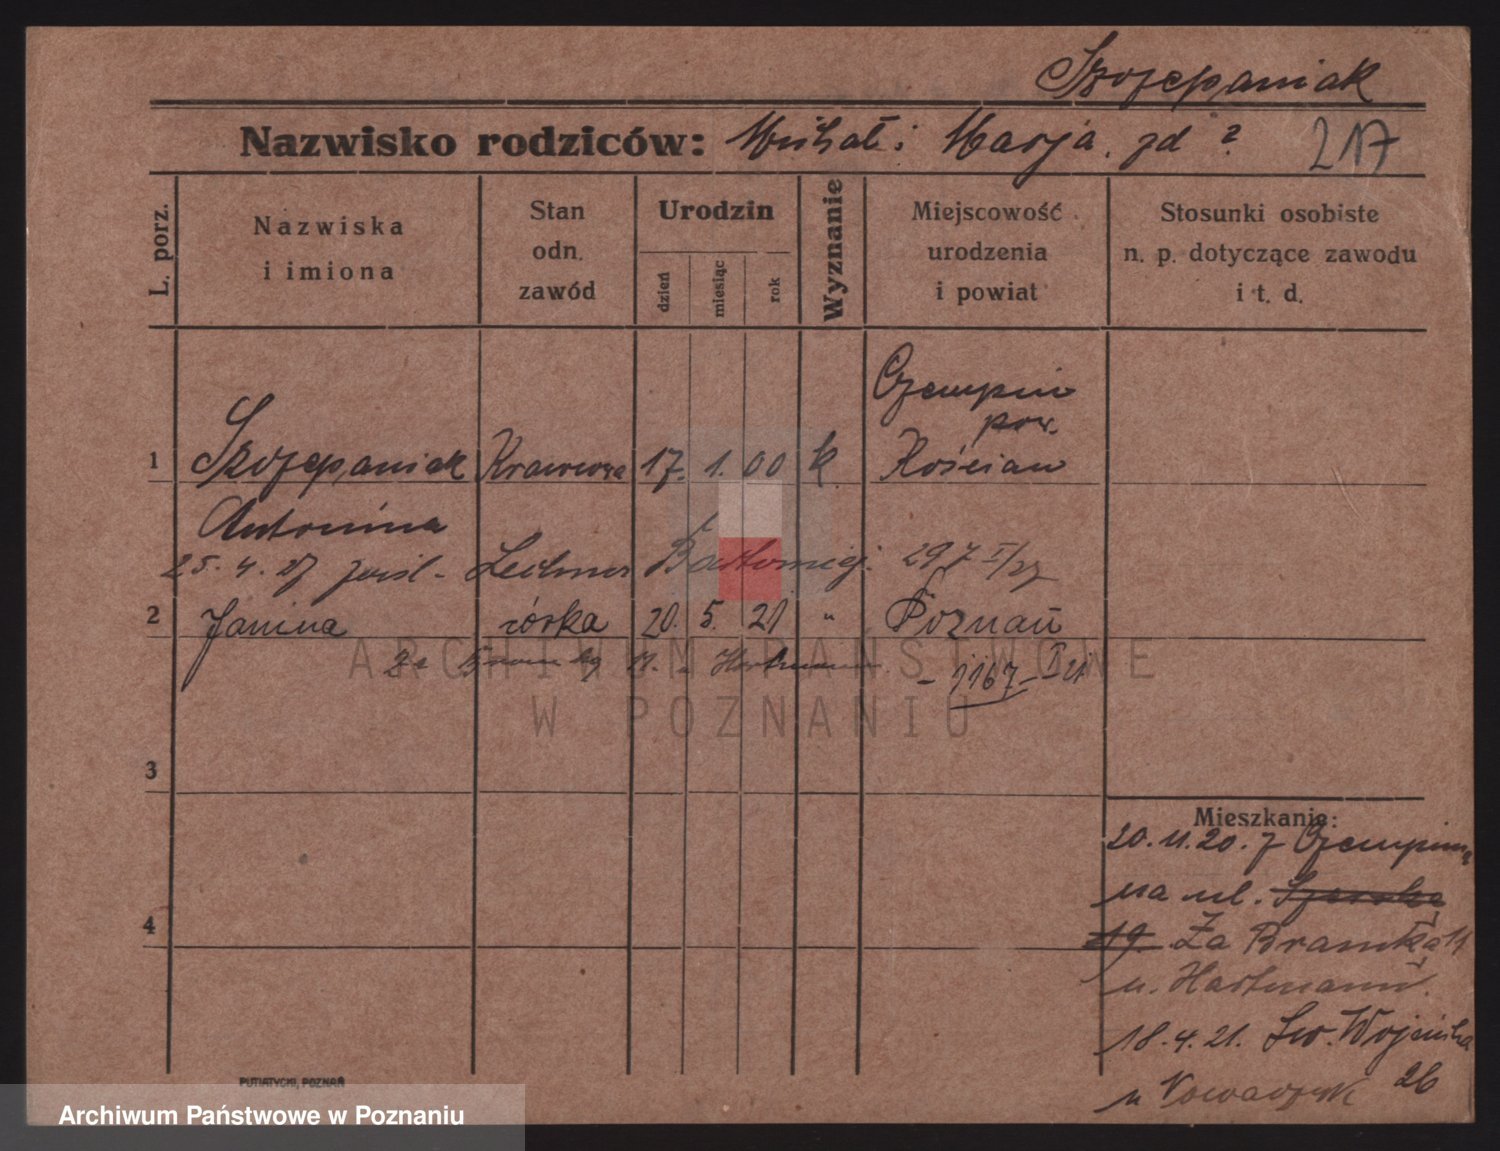 Szczepaniak
Nazwisko rodziców: Michał i Marja. zd ? 217
L. porz.
Nazwiska i imiona
Stan odn. zawód
Urodzin
dzień miesiąc rok
Wyznanie
Miejscowość urodzenia i powiat
Stosunki osobiste n. p. dotyczące zawodu i t. d.
Czempiń
pow.
1 Szczepaniak Krawcowa 17. 1. 00 k. Kościan
Antonina
25. 4. 27 Bartłomiej. 297 I/27
2 Janina córka 20. 5. 21 " Poznań
11. Hartmann. - 1167 - I 21
3
4
Mieszkanie:
20. 11. 20. z Czempinia
na ul. Szeroką
19. Za Bramką 11
u. Hartmann.
18. 4. 21. Św. Wojciecha
u Nowaczyk 26
PUTIATYCKI, POZNAŃ
ARCHIWUM PAŃSTWOWE
W POZNANIU
Archiwum Państwowe w Poznaniu